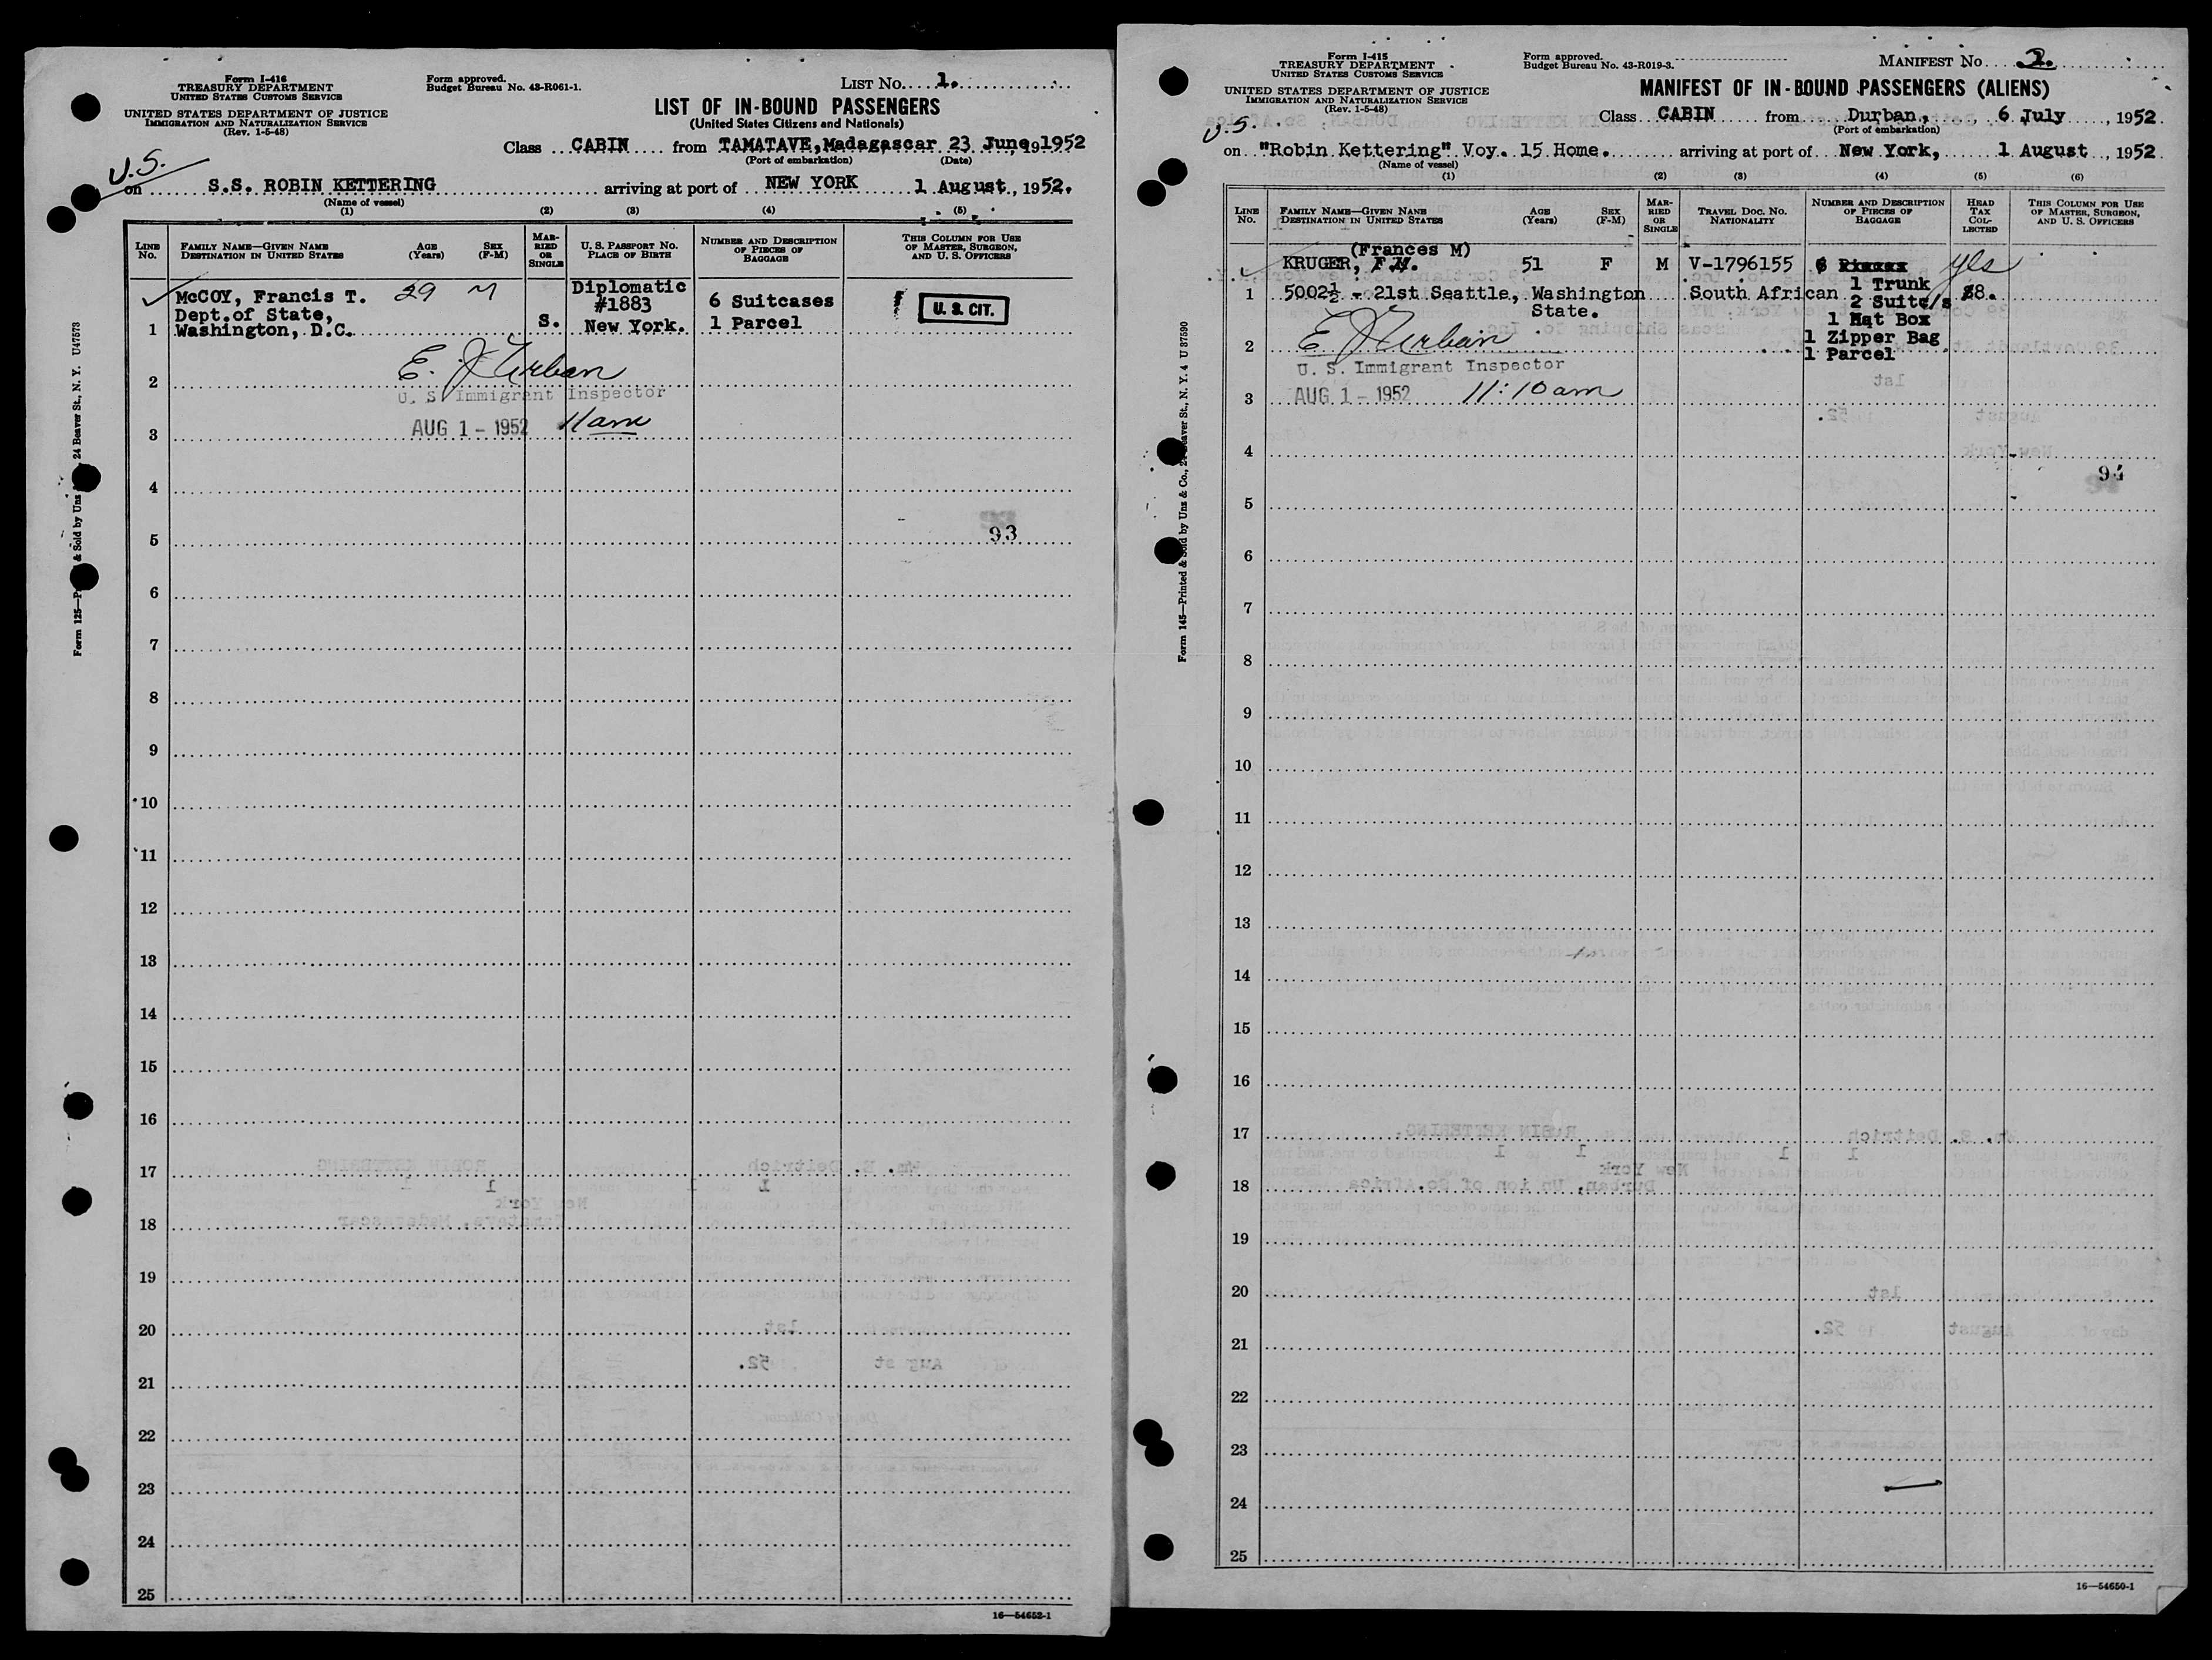 Form I-416
TREASURY DEPARTMENT
UNITED STATES CUSTOMS SERVICE
UNITED STATES DEPARTMENT OF JUSTICE
IMMIGRATION AND NATURALIZATION SERVICE
(Rev. 1-5-48)
Form approved.
Budget Bureau No. 43-R061-1.
LIST No. 1.
LIST OF IN-BOUND PASSENGERS
(United States Citizens and Nationals)
Class CABIN from TAMATAVE, Madagascar 23 June, 19 1952
(Port of embarkation) (Date)
U.S.
on S.S. ROBIN KETTERING arriving at port of NEW YORK 1 August, 1952.
(Name of vessel)
(1) (2) (3) (4) (5)
LINE No. FAMILY NAME—GIVEN NAME DESTINATION IN UNITED STATES AGE (Years) SEX (F-M) MARRIED OR SINGLE U. S. PASSPORT NO. PLACE OF BIRTH NUMBER AND DESCRIPTION OF PIECES OF BAGGAGE THIS COLUMN FOR USE OF MASTER, SURGEON, AND U. S. OFFICERS
McCOY, Francis T. 29 M Diplomatic #1883 6 Suitcases U. S. CIT.
Dept.of State,
1 Washington, D.C. S. New York. 1 Parcel
E. J Urban
2
U. S. Immigrant Inspector
AUG 1 - 1952 11am
3
4
93
5
6
7
8
9
10
11
12
13
14
15
16
17
18
19
20
21
22
23
24
25
16—54652-1
Form 125—P & Sold by Unz 24 Beaver St., N. Y. U47573
Form I-415
TREASURY DEPARTMENT
UNITED STATES CUSTOMS SERVICE
UNITED STATES DEPARTMENT OF JUSTICE
IMMIGRATION AND NATURALIZATION SERVICE
(Rev. 1-5-48)
Form approved.
Budget Bureau No. 43-R019-3.
MANIFEST No.
MANIFEST OF IN-BOUND PASSENGERS (ALIENS)
Class CABIN from Durban, 6 July, 1952.
(Port of embarkation)
U.S.
on "Robin Kettering" Voy. 15 Home. arriving at port of New York, 1 August, 1952.
(Name of vessel)
(1) (2) (3) (4) (5) (6)
LINE No. FAMILY NAME—GIVEN NAME DESTINATION IN UNITED STATES AGE (Years) SEX (F-M) MARRIED OR SINGLE TRAVEL DOC. NO. NATIONALITY NUMBER AND DESCRIPTION OF PIECES OF BAGGAGE HEAD TAX COLLECTED THIS COLUMN FOR USE OF MASTER, SURGEON, AND U. S. OFFICERS
(Frances M)
KRUGER, F.M. 51 F M V-1796155 yes
1 Trunk
1 5002½ - 21st Seattle, Washington South African 2 Suitc/s $8.
State.
1 Hat Box
E J Urban
2 1 Zipper Bag
1 Parcel
U. S. Immigrant Inspector
AUG 1 - 1952 11:10am
3
4
94
5
6
7
8
9
10
11
12
13
14
15
16
17
18
19
20
21
22
23
24
25
16—54650-1
Form 145—Printed & Sold by Unz & Co., 24 Beaver St., N. Y. 4 U 87590